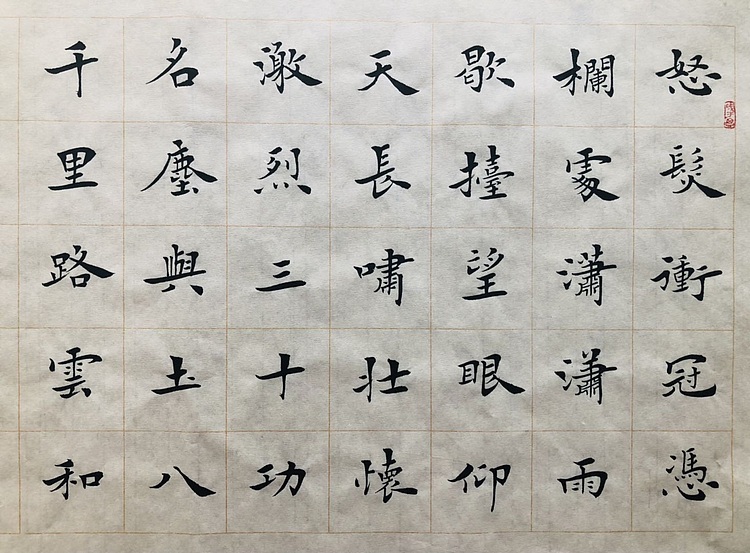 怒髮衝冠憑
欄處瀟瀟雨
歇擡望眼仰
天長嘯壯懷
激烈三十功
名塵與土八
千里路雲和